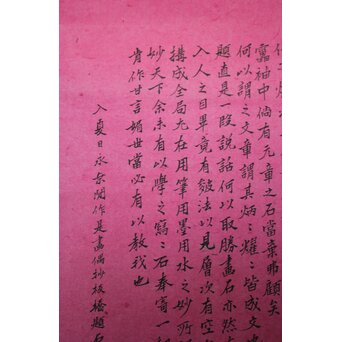 袖中倘有元章之石當棄弗顧矣
何以謂之文章謂其炳々耀々皆成文
題直是一段說話何以取勝畫石亦然
入人之目畢竟有皴法以見層次有空
構成全局尤在用筆用墨用水之妙所
妙天下余未有以學之寫々石奉寄一
肯作甘言媚世當必有以教我也
入夏日永閒作是畫偶抄板橋題石